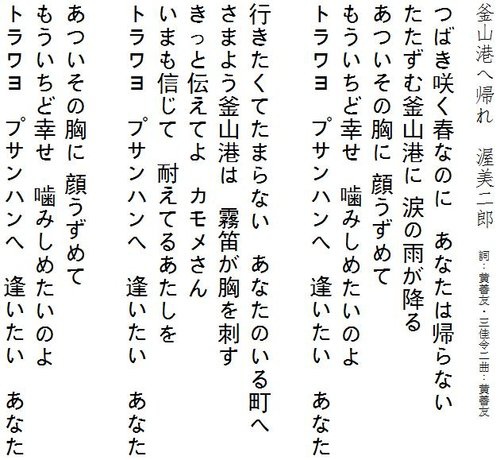 釜山港へ帰れ　渥美二郎　詞：黄善友・三佳令二 曲：黄善友
つばき咲く春なのに　あなたは帰らない
たたずむ釜山港に 涙の雨が降る
あついその胸に 顔うずめて
もういちど幸せ　噛みしめたいのよ
トラワヨ　プサンハンへ　逢いたい　あなた
行きたくてたまらない　あなたのいる町へ
さまよう釜山港は　霧笛が胸を刺す
きっと伝えてよ　カモメさん
いまも信じて　耐えてるあたしを
トラワヨ　プサンハンへ　逢いたい　あなた
あついその胸に 顔うずめて
もういちど幸せ　噛みしめたいのよ
トラワヨ　プサンハンへ　逢いたい　あなた